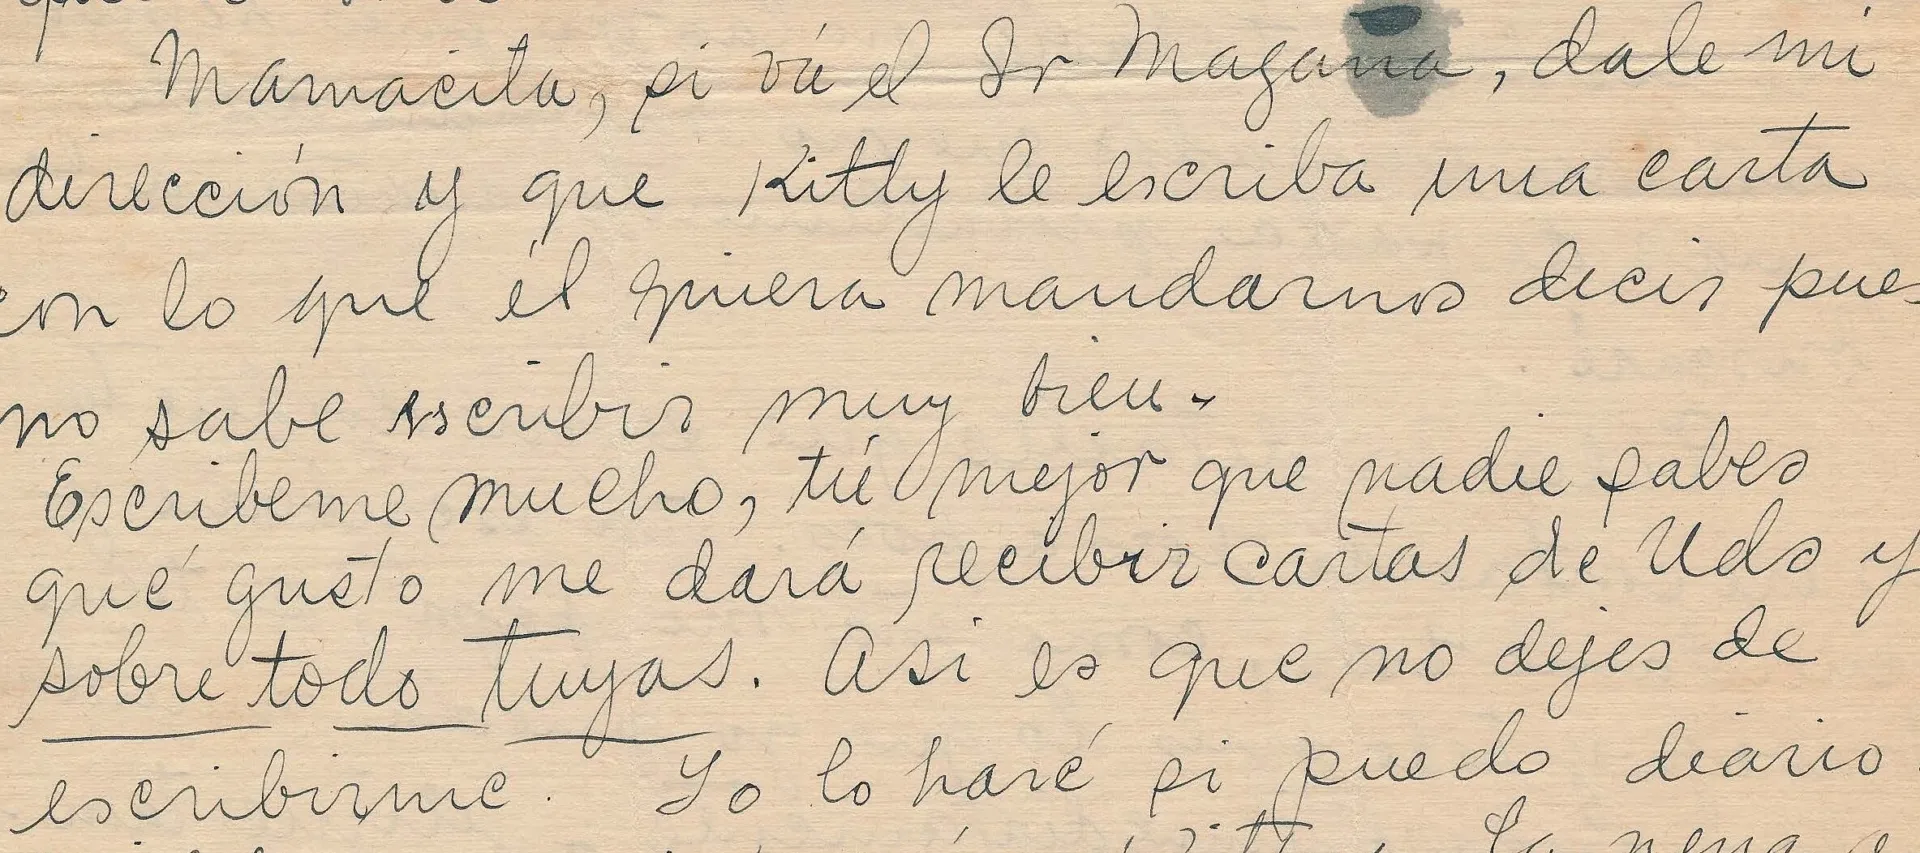 Mamacita, si vá el Sr Magana, dale mi
dirección y que Kitty le escriba una carta
con lo que él quiera mandarnos decir pues
no sabe escribir muy bien.
Escribeme mucho, tú mejor que nadie sabes
qué gusto me dará recibir cartas de Uds y
sobre todo tuyas. Asi es que no dejes de
escribirme. Yo lo haré si puedo diario.
La nena